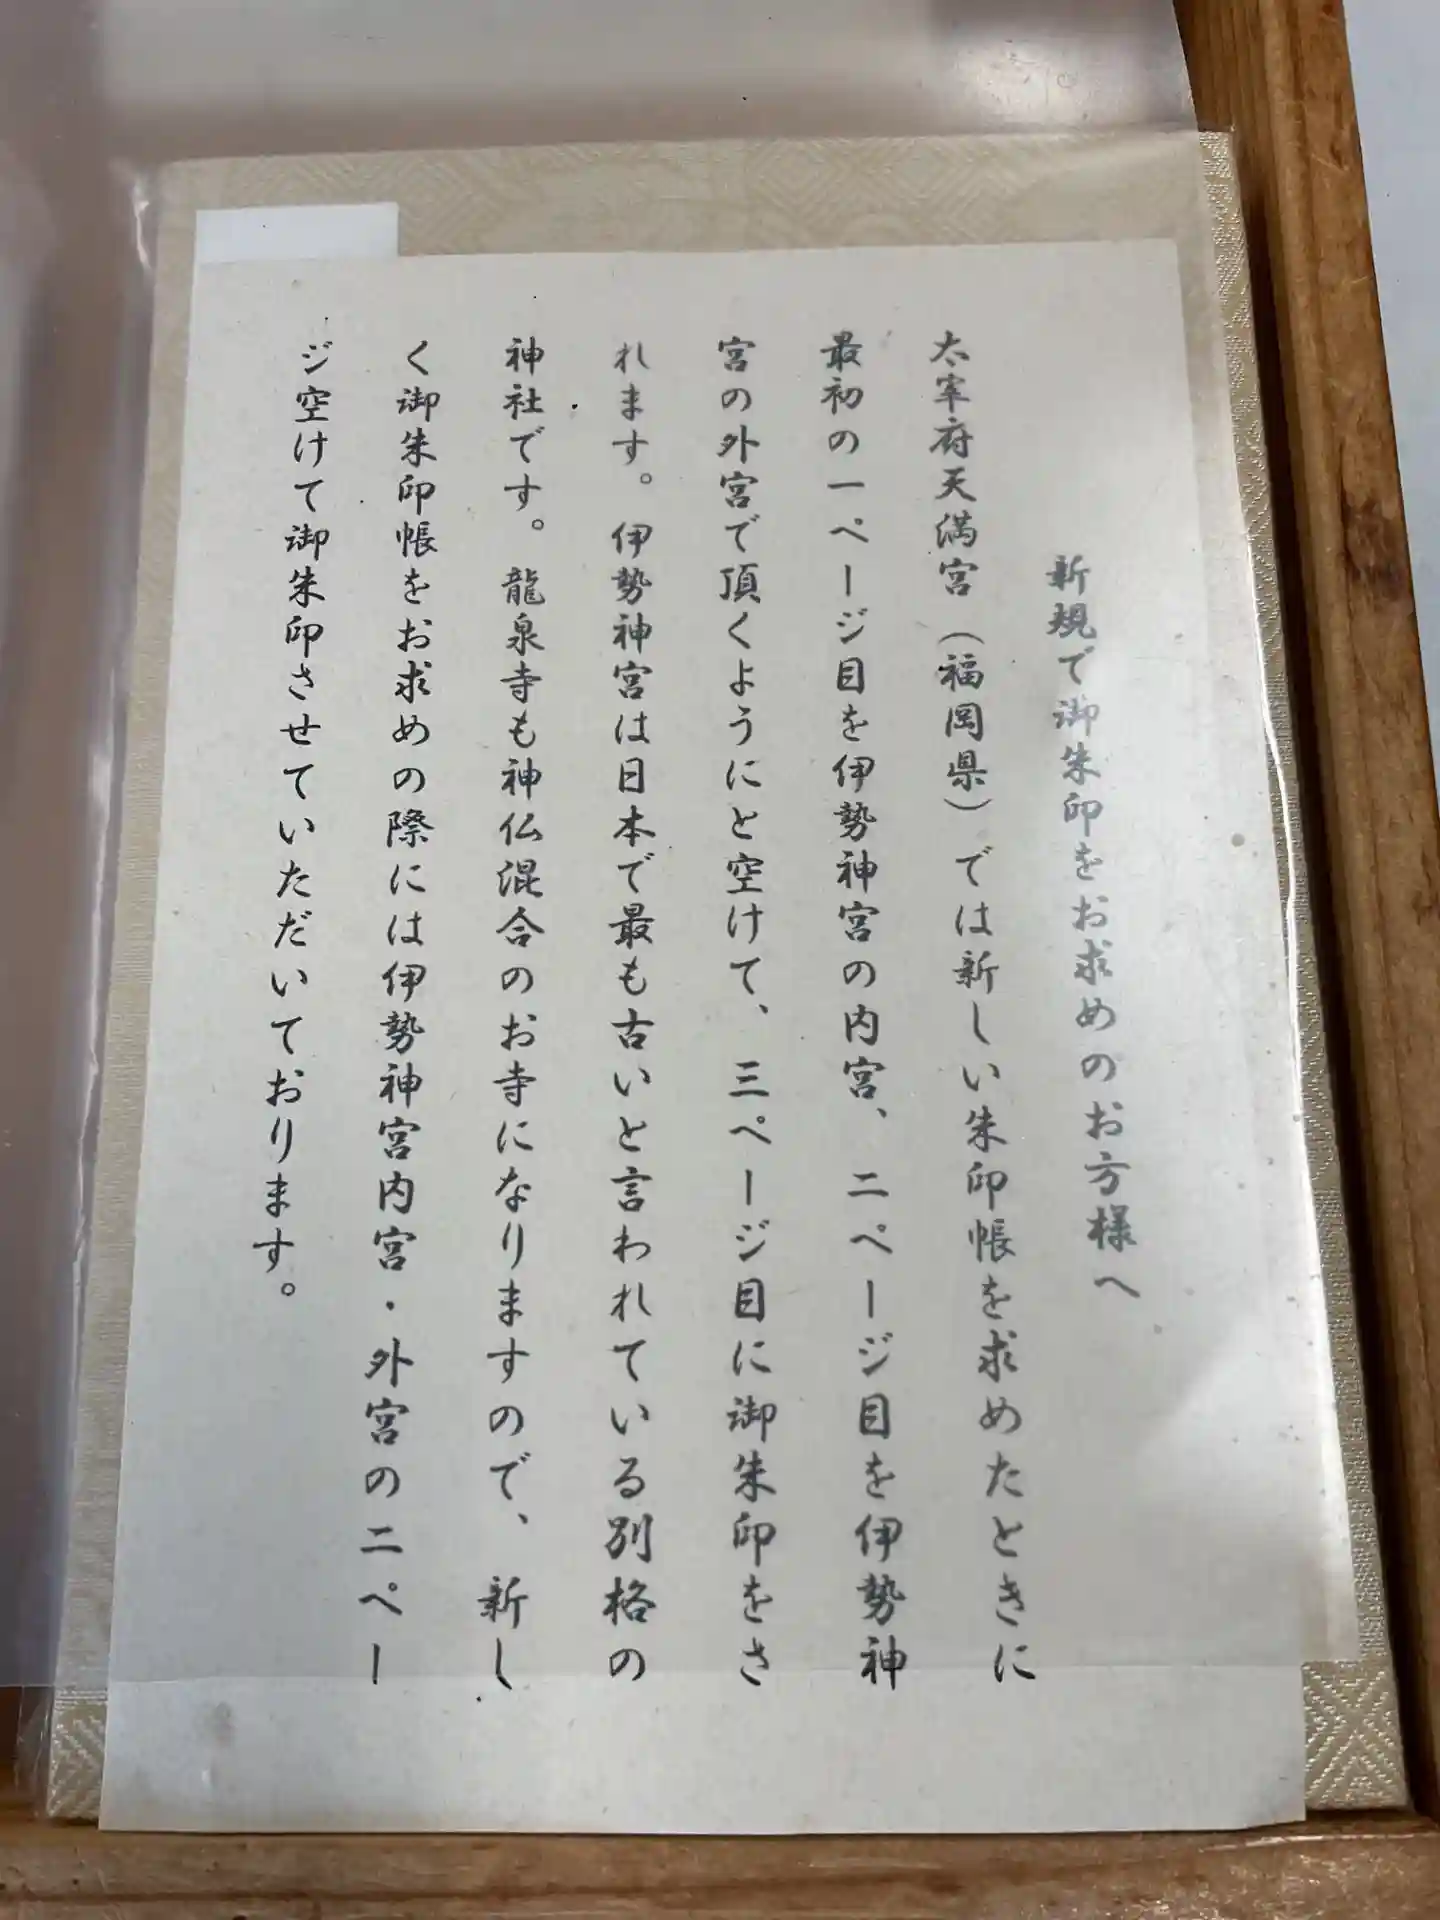 新規で御朱印をお求めのお方様へ
太宰府天満宮（福岡県）では新しい朱印帳を求めたときに
最初の一ページ目を伊勢神宮の内宮、二ページ目を伊勢神
宮の外宮で頂くようにと空けて、三ページ目に御朱印をさ
れます。伊勢神宮は日本で最も古いと言われている別格の
神社です。龍泉寺も神仏混合のお寺になりますので、新し
く御朱印帳をお求めの際には伊勢神宮内宮・外宮の二ペー
ジ空けて御朱印させていただいております。